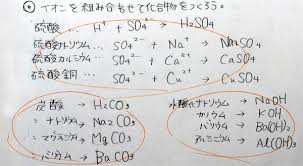 ◎ イオンを組み合わせて化合物をつくろう。
硫酸 … H⁺ + SO₄²⁻ → H₂SO₄
硫酸ナトリウム … SO₄²⁻ + Na⁺ → Na₂SO₄
硫酸カルシウム … SO₄²⁻ + Ca²⁺ → CaSO₄
硫酸銅 … SO₄²⁻ + Cu²⁺ → CuSO₄
炭酸 → H₂CO₃
〃 ナトリウム → Na₂CO₃
〃 マグネシウム → MgCO₃
〃 バリウム → BaCO₃
水酸化ナトリウム → NaOH
カリウム → KOH
バリウム → Ba(OH)₂
アルミニウム → Al(OH)₃